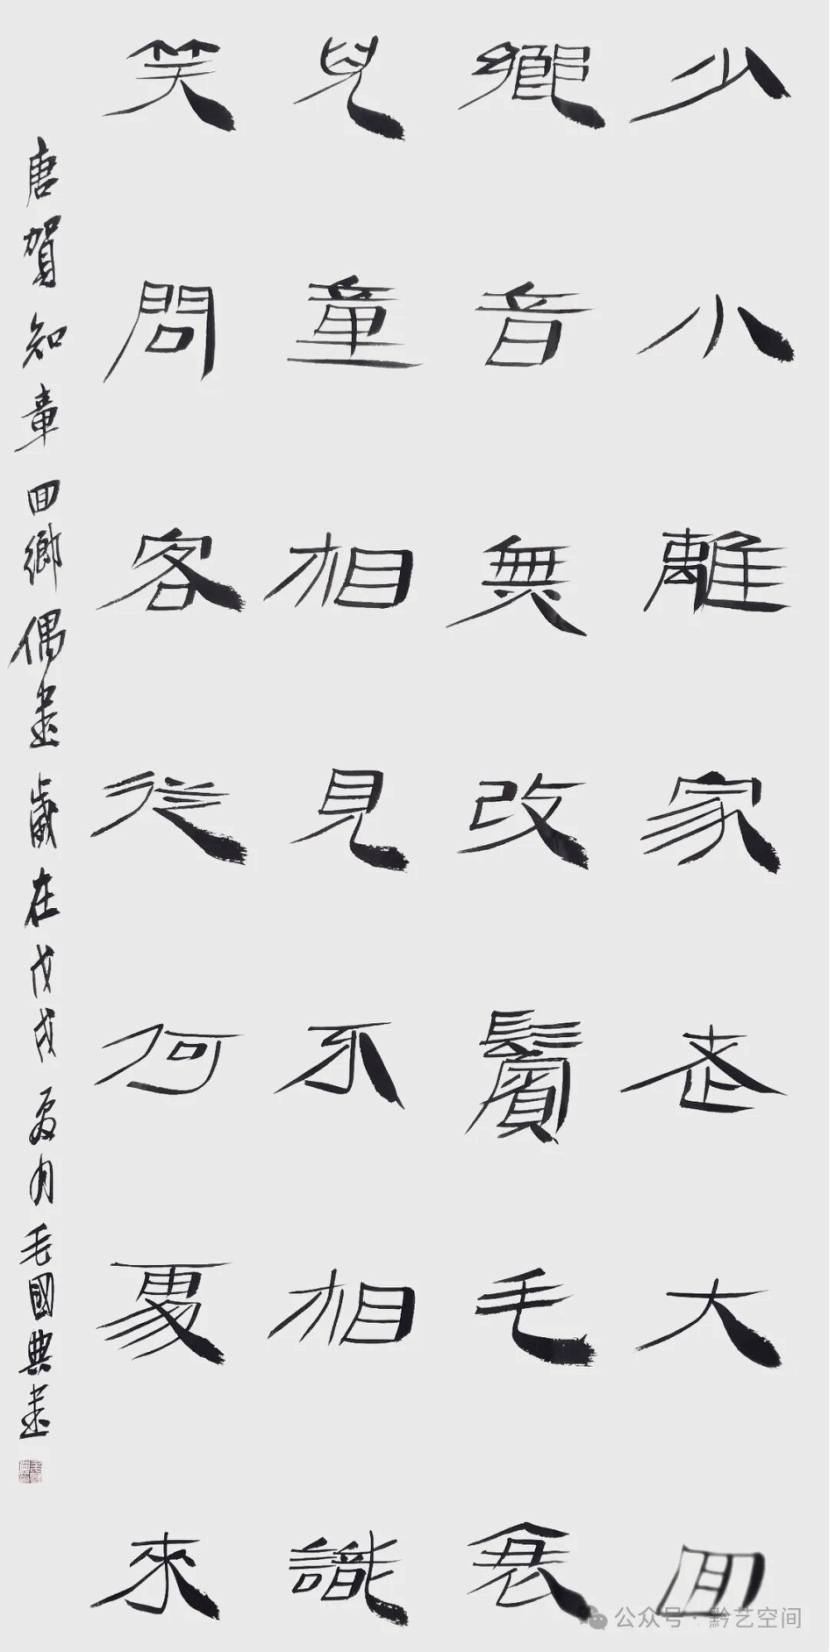 少小離家老大回
鄉音無改鬢毛衰
兒童相見不相識
笑問客從何處來
唐賀知章回鄉偶書歲在戊戌夏月毛國典書
公众号·黔艺空间